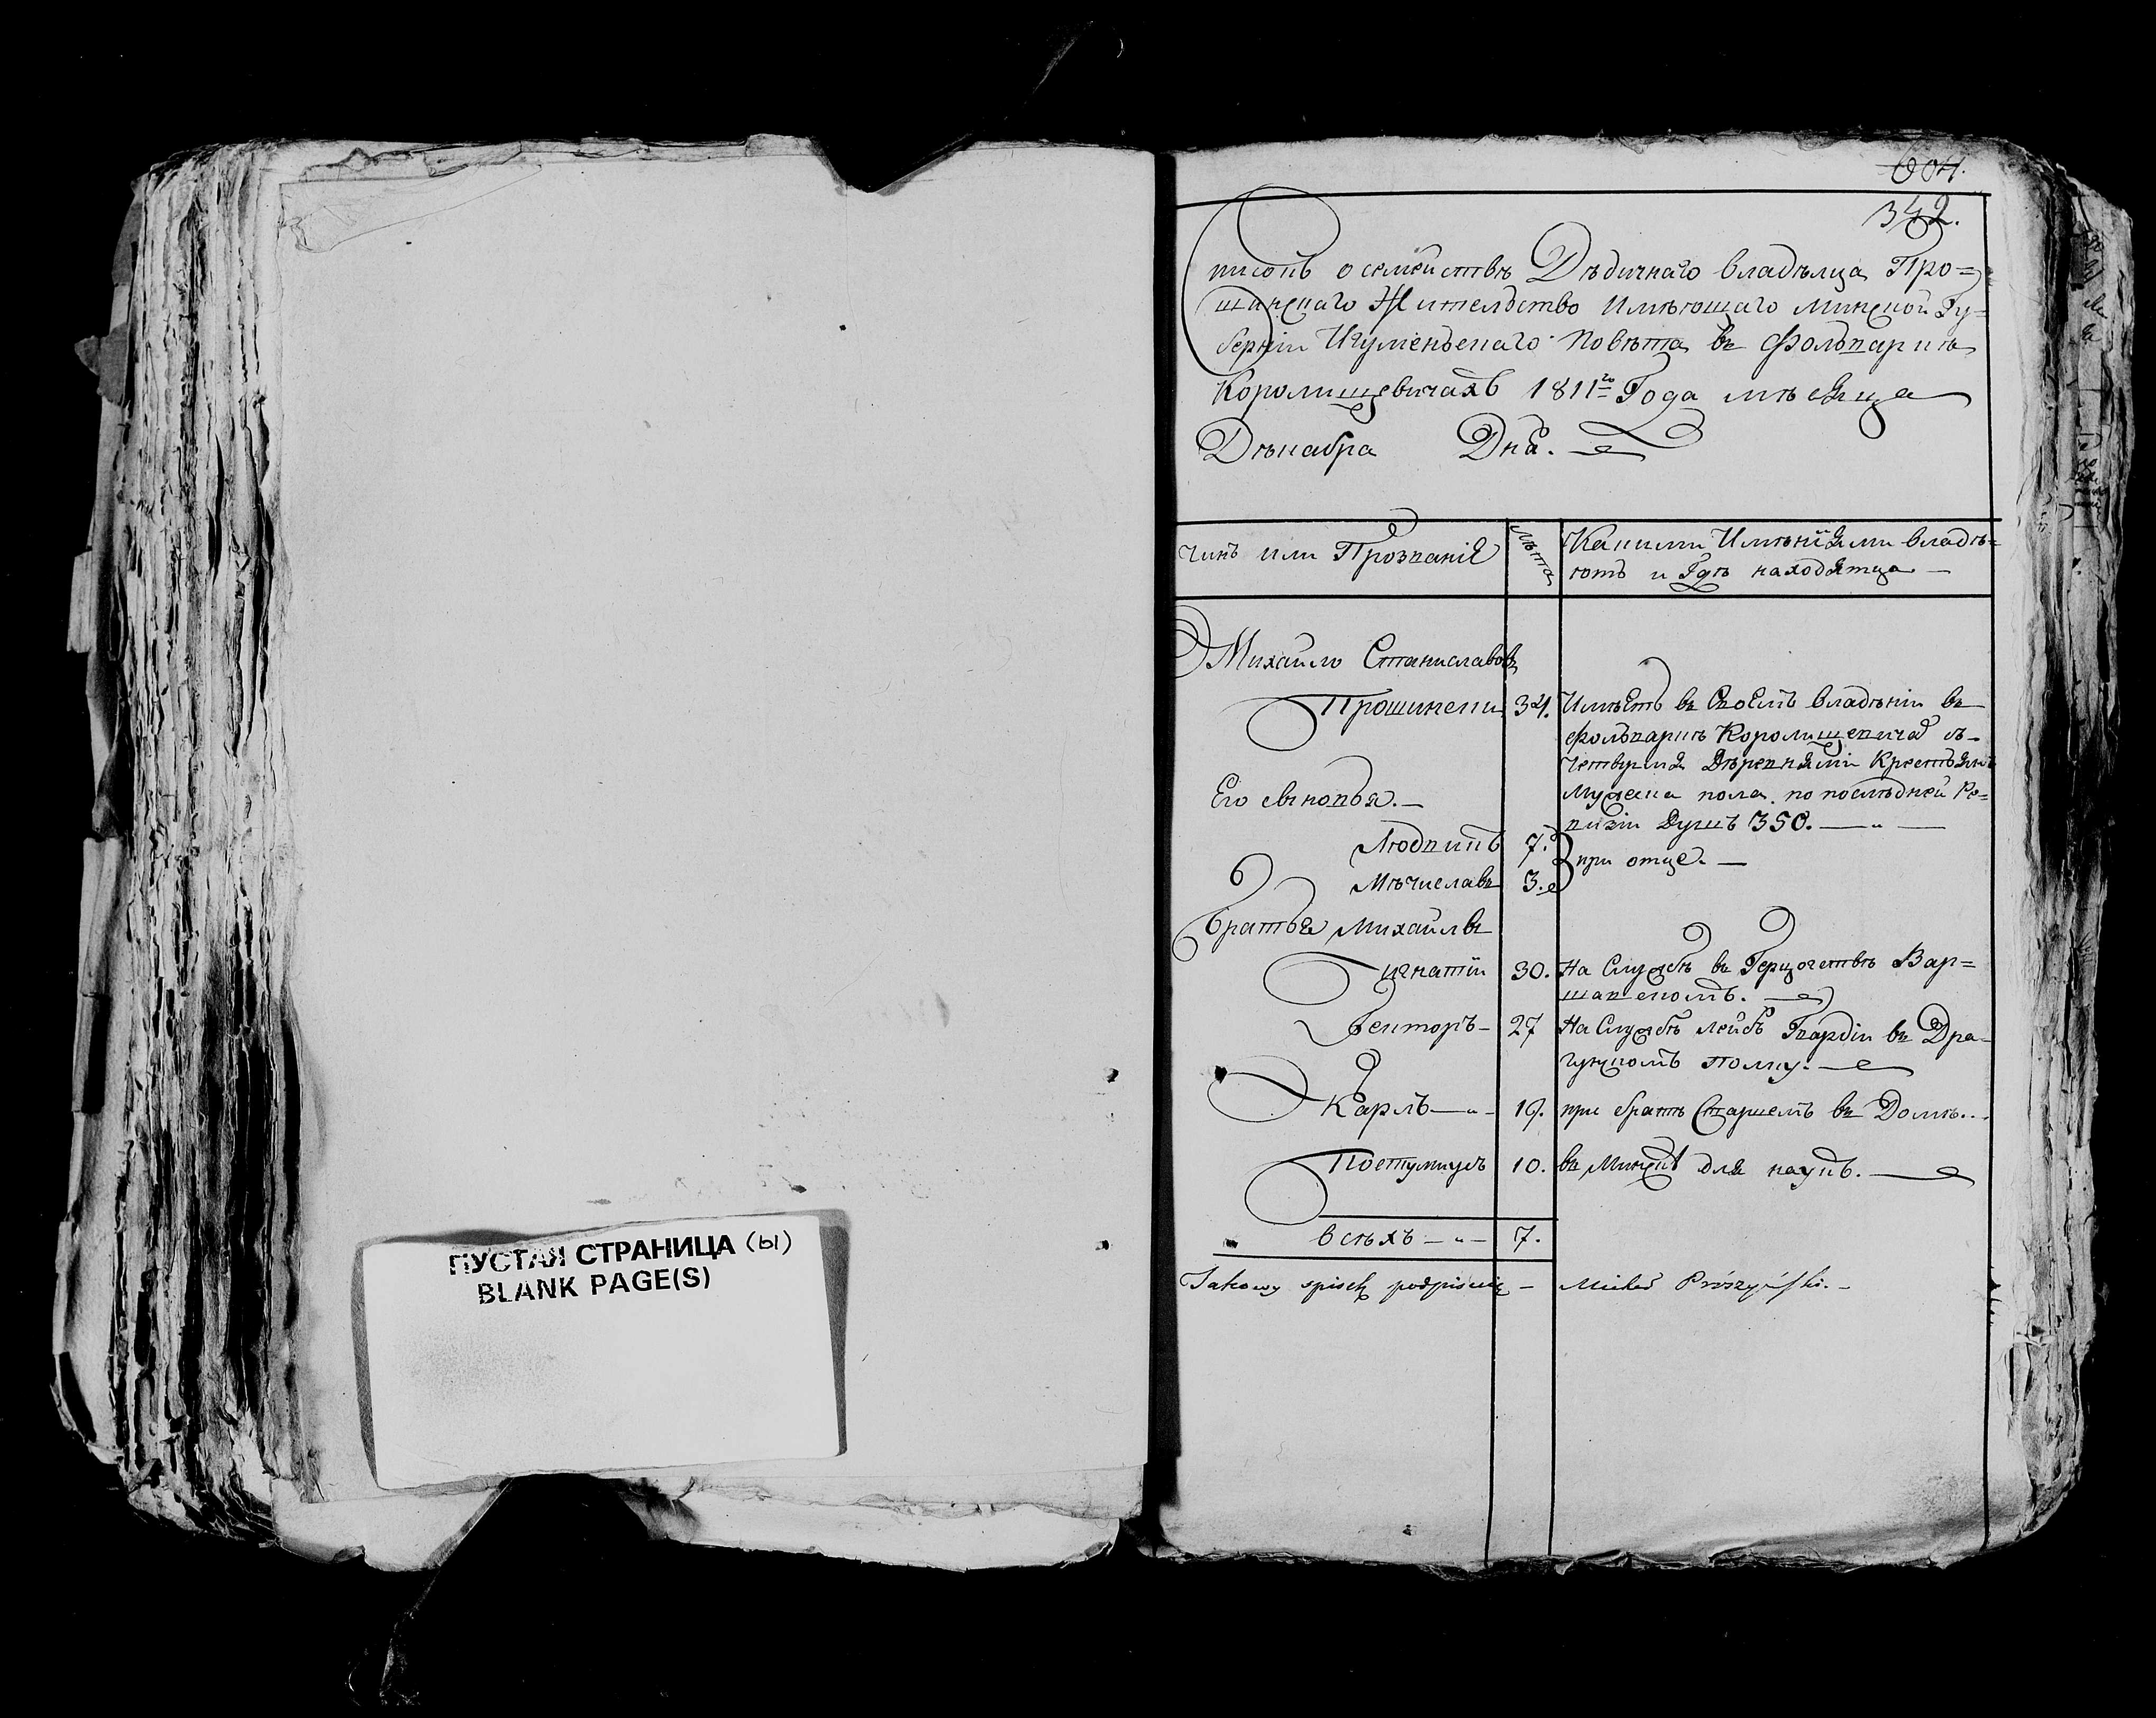 604.
342.
Списокъ о семействѣ Дѣдичнаго владѣлца Про=
шинскаго Жителство Имѣющаго Минской Гу=
берніи Игуменьскаго Повѣта въ Фольваркѣ
Королищевичахъ 1811го Года мѣсяца
Дѣкабра Дня.
Чинъ или Прозваніе
Лѣта
Какими Имѣніями владѣ=
ютъ и Гдѣ находятца —
Михайло Станиславовъ
Прошински 34. Имѣетъ въ Своемъ владѣніи въ
фольваркѣ Королищевичахъ съ
четырмя Дѣревнями Крестьянъ
Мужска пола по послѣдней Ре=
визіи Душъ 350. — „ —
Его сыновья. —
Людвикъ 7.
Мѣчиславъ 3. при отце. —
братья Михайлы
Игнатій 30. На Службѣ въ Герцогствѣ Вар=
шавскомъ. —
Викторъ — 27 На Службѣ лейбъ Гвардіи въ Дра=
гунскомъ Полку. —
Карлъ — „ — 19. при братѣ Старшемъ въ Домѣ...
Постумиусъ 10. въ Минскѣ для наукъ. —
всѣхъ — „ — 7.
Takowy spisek podpisuię — Michał Prószyński. —
ПУСТАЯ СТРАНИЦА (Ы)
BLANK PAGE(S)